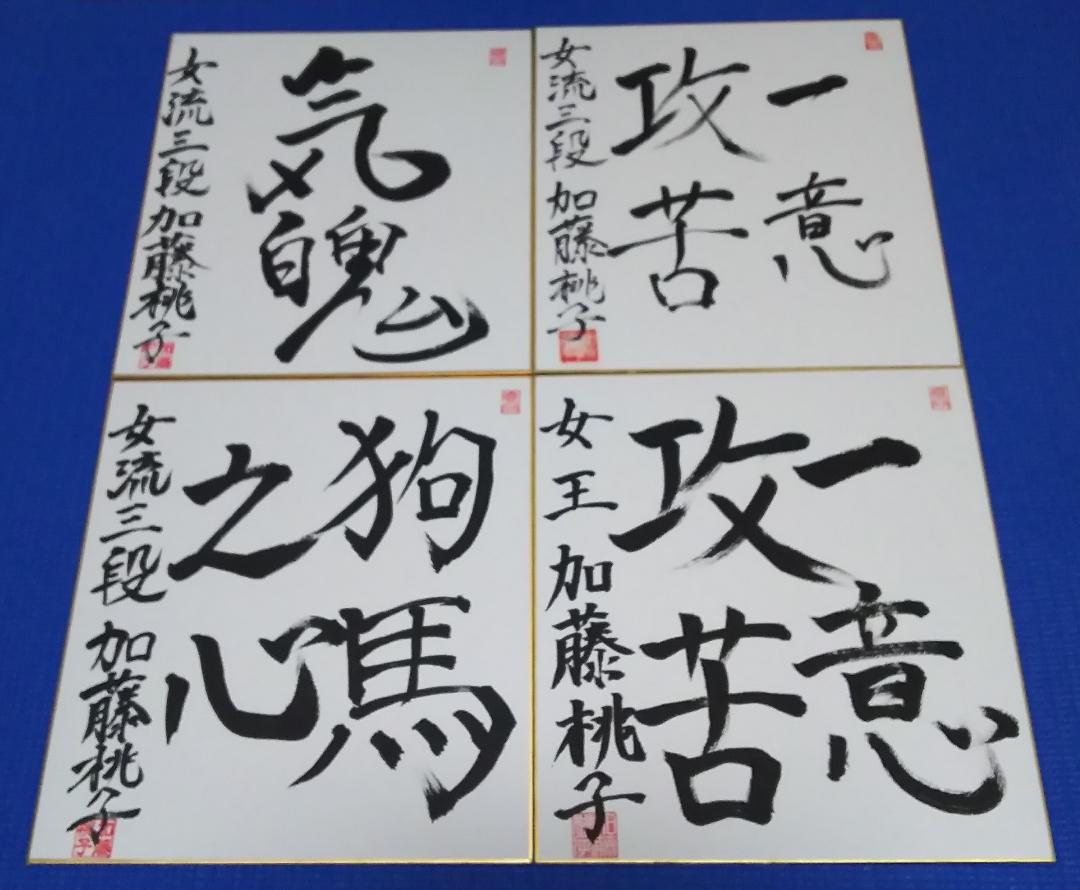 気魄
女流三段 加藤桃子
一意
攻苦
女流三段 加藤桃子
狗馬
之心
女流三段 加藤桃子
一意
攻苦
女王 加藤桃子